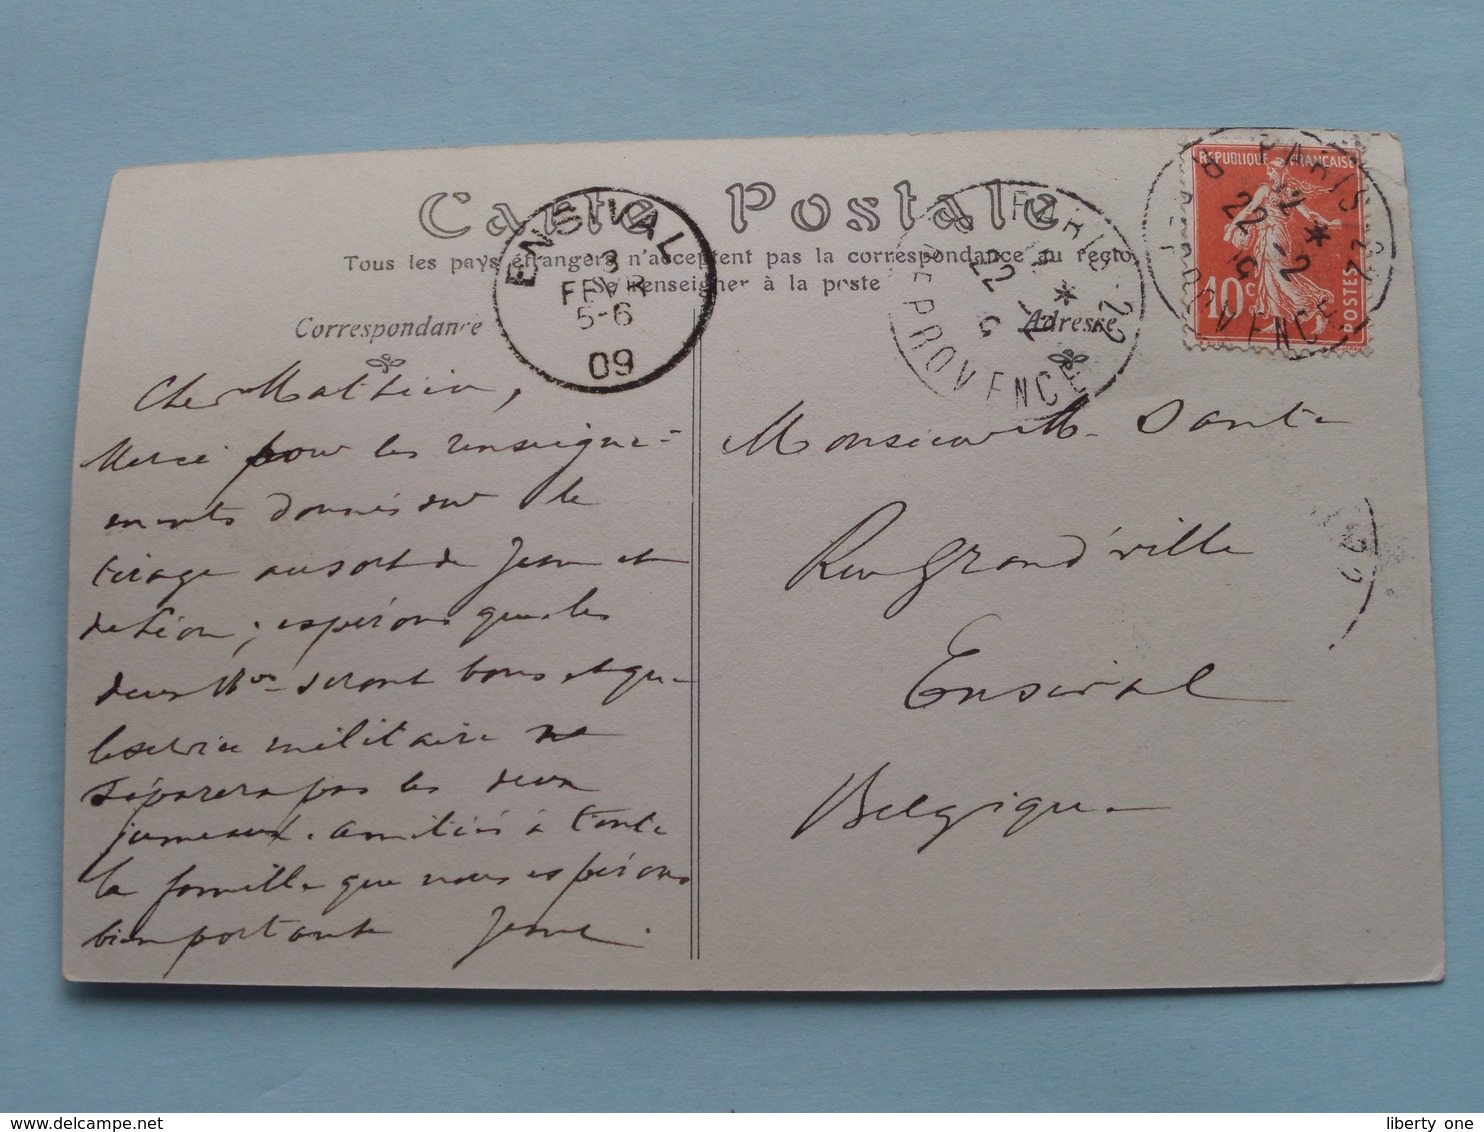 Carte Postale
Tous les pays étrangers n'acceptent pas la correspondance au recto
Se renseigner à la poste
Correspondance
Adresse
ENSIVAL
3
FEVR
5-6
09
PARIS-22
22
R. DE PROVENCE
PARIS 22
12 *
22 -2
R. DE PROVENCE
REPUBLIQUE FRANÇAISE
10 c
POSTES
Cher Mathieu,
Merci pour les renseigne=
ments donnés sur le
tirage au sort de Jean et
de Léon; espérons que les
deux Nos seront bons et que
le service militaire ne
séparera pas les deux
jumeaux. Amitiés à toute
la famille que nous espérons
bien portante Jeanne.
Monsieur M. Dante
Rue Grand'ville
Ensival
Belgique
liberty one
www.delcampe.net